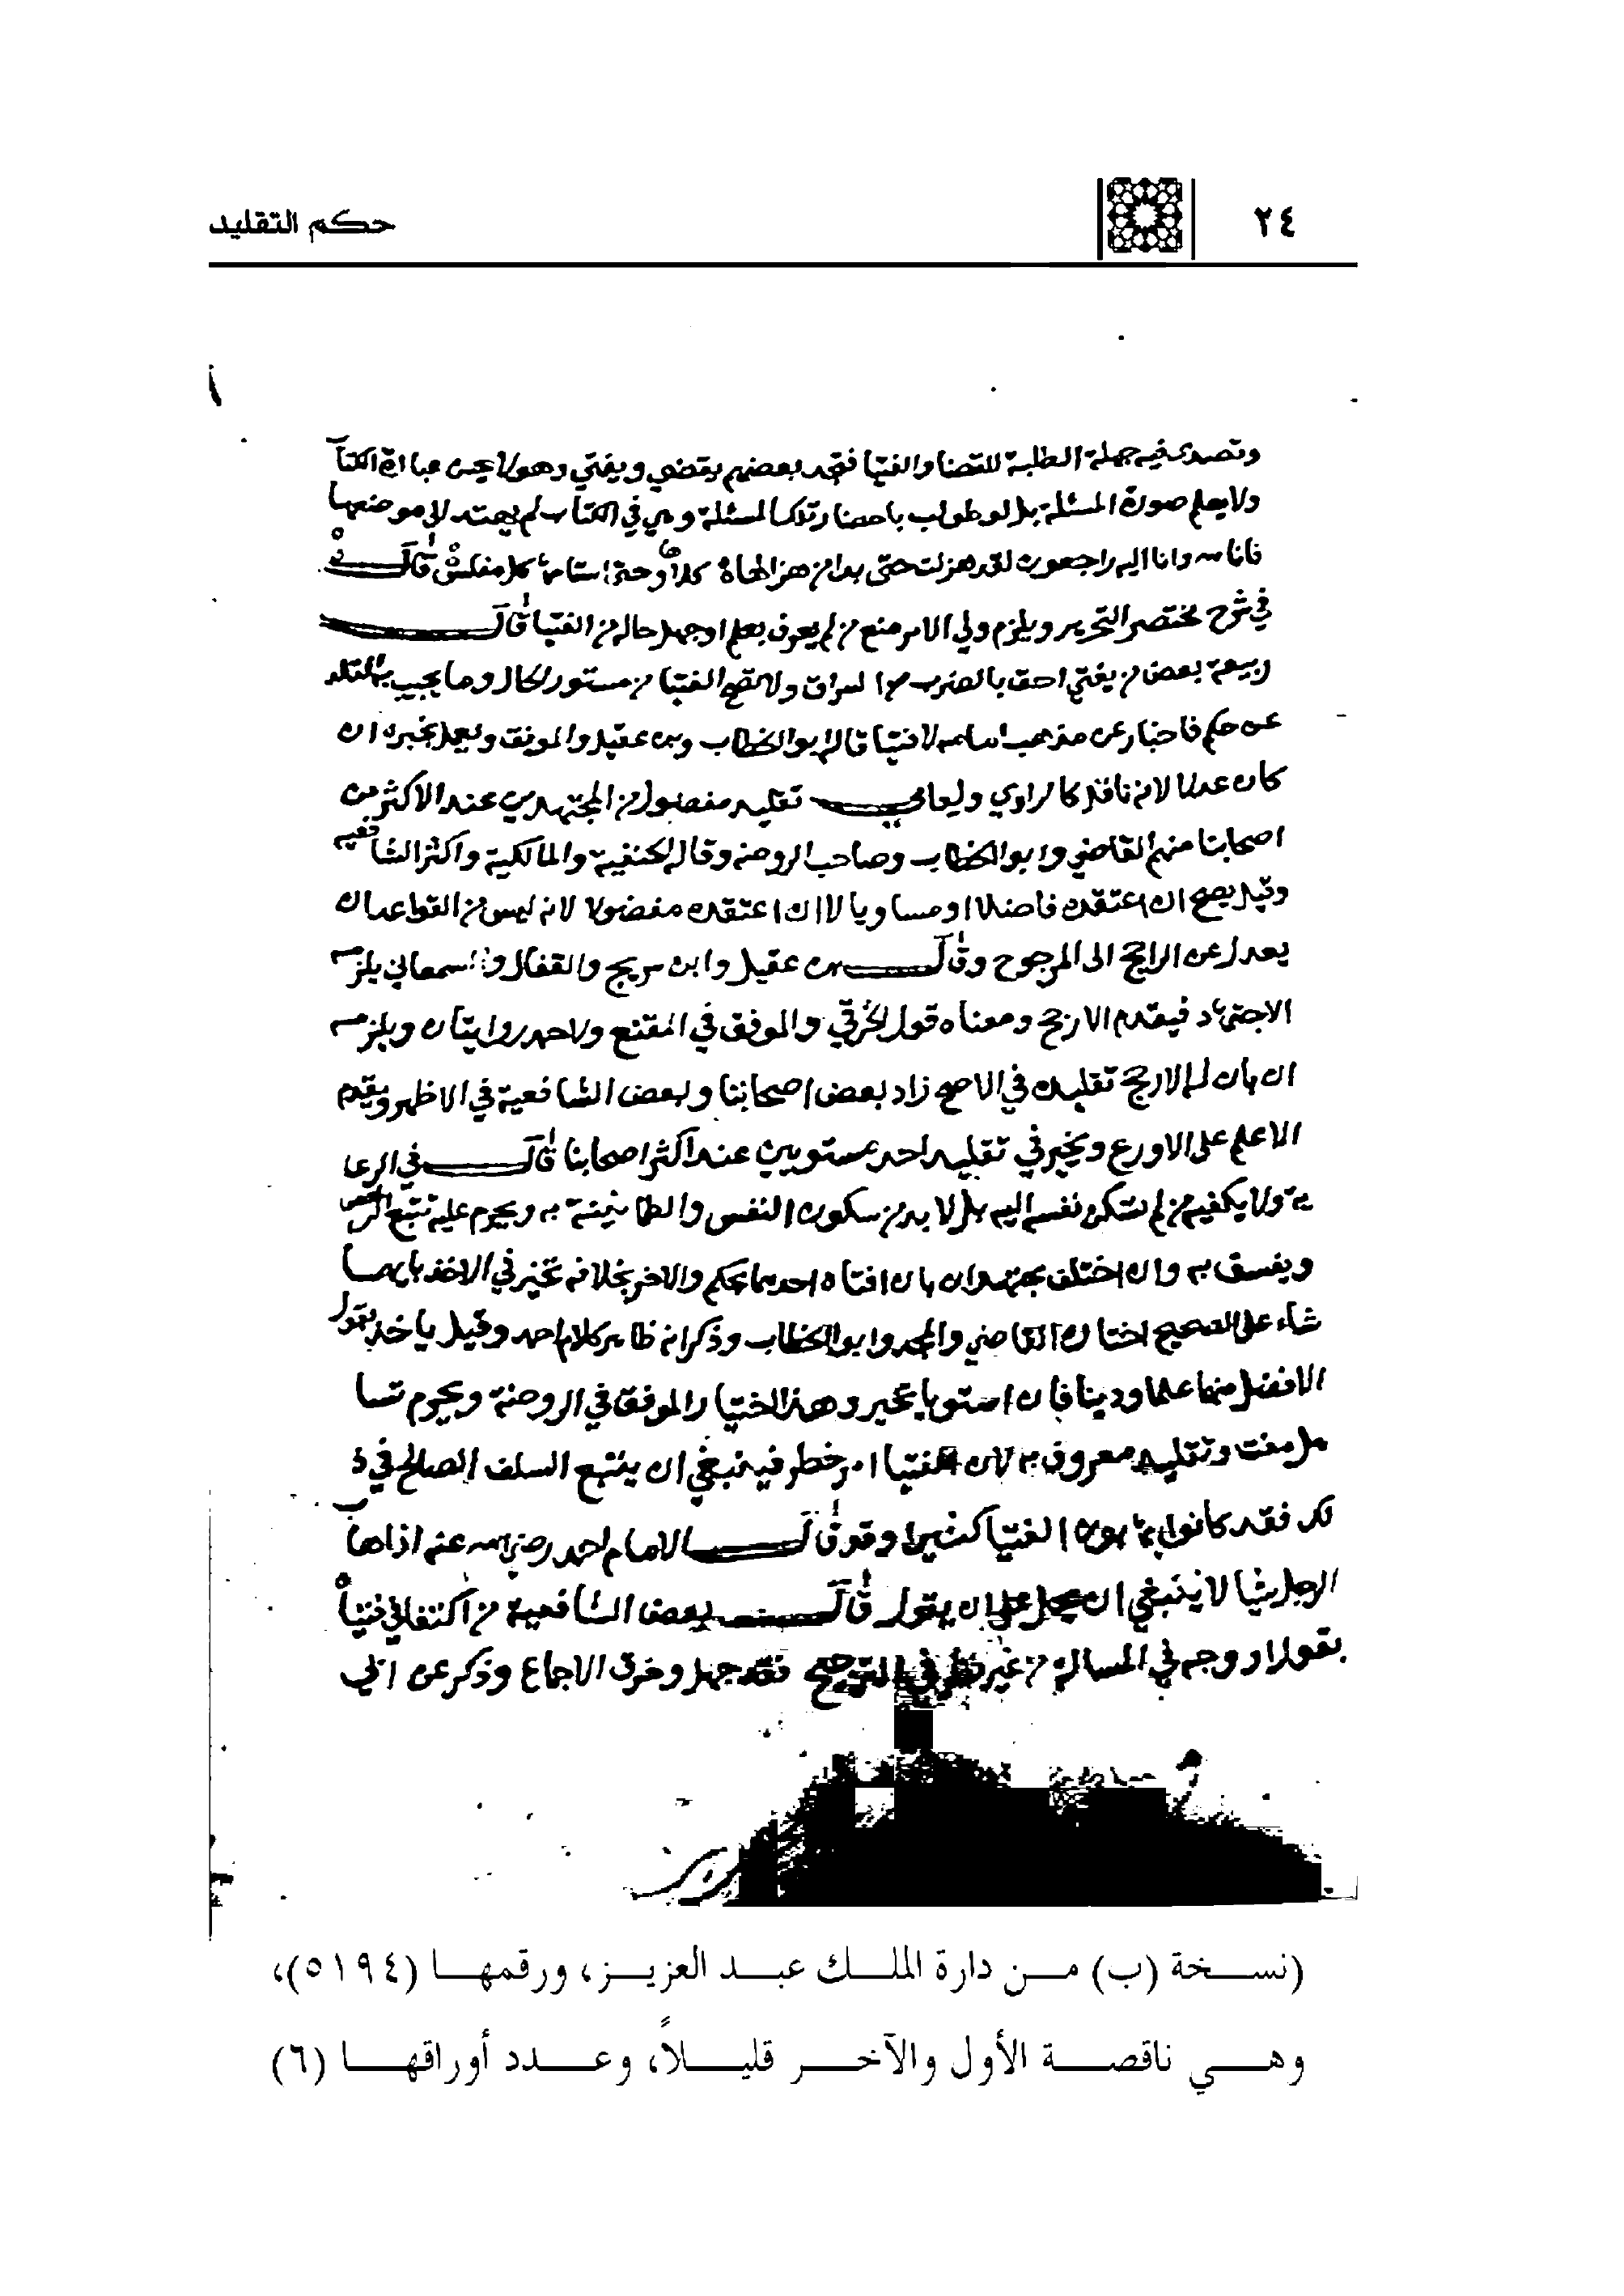 ٢٤
حكم التقليد
وتصدى فيه جهلة الطلبة للقضا والفتيا فتجد بعضهم يقضي ويفتي وهو لا يحسن عبارة الكتا
ولا يعلم صورة المسئلة بل لو طولب باحضار تلك المسئلة وهي في الكتاب لم يهتد الى موضعها
فانا لله وانا اليه راجعون لقد هزلت حتى بدا من هزالها كلاها وحتى استامها كل مفلس قال
في شرح مختصر التحرير ويلزم ولي الامر منع من لم يعرف بعلم او جهل حاله من الفتيا قال
ربيعة بعض من يفتي احق بالضرب من السراق ولا تصح الفتيا من مستور الحال وما يجيب به المقلد
عن حكم فاخبار عن مذهب امامه لا فتيا قاله ابو الخطاب وابن عقيل والموفق ويعمل بخبره ان
كان عدلا لانه ناقل كالراوي ولعامي تقليد مفضول من المجتهدين عند الاكثر من
اصحابنا منهم القاضي وابو الخطاب وصاحب الروضة وقاله الحنفية والمالكية واكثر الشافعيه
وقيل يصح ان اعتقده فاضلا او مساويا لا ان اعتقده مفضولا لانه ليس من القواعد ان
يعدل عن الراجح الى المرجوح وقال ابن عقيل وابن سريج والقفال والسمعاني يلزمه
الاجتهاد فيقدم الارجح ومعناه قول الخرقي والموفق في المقنع ولاحمد روايتان ويلزمه
ان بان له الارجح تقليده في الاصح زاد بعض اصحابنا وبعض الشافعية في الاظهر ويقدم
الاعلم على الاورع ويخير في تقليد احد مستويين عند اكثر اصحابنا قال في الرعا
ية ولا يكفيه من لم تسكن نفسه اليه بل لا بد من سكون النفس والطمانينة به ويحرم عليه تتبع الرخص
ويفسق به وان اختلف مجتهدان بان افتاه احدهما بحكم والاخر بخلافه تخير في الاخذ بايهما
شاء على الصحيح اختاره القاضي والمجد وابو الخطاب وذكر انه ظاهر كلام احمد وقيل ياخذ بقول
الافضل منهما علما ودينا فان استويا تخير وهذا اختيار الموفق في الروضة ويحرم تسا
هل مفت وتقليد معروف به لان الفتيا امر خطر فينبغي ان يتبع السلف الصالح في ذ
لك فقد كانوا يهابون الفتيا كثيرا وقد قال الامام احمد رضي الله عنه اذا هاب
الرجل شيا لا ينبغي ان يحمل على ان يقول قال بعض الشافعية من اكتفا في فتياه
بقول او وجه في المسالة من غير نظر في الترجيح فقد جهل وخرق الاجماع وذكر عن ابي
(نسخة (ب) من دارة الملك عبد العزيز، ورقمها (٥١٩٤)،
وهي ناقصة الأول والآخر قليلاً، وعدد أوراقها (٦)